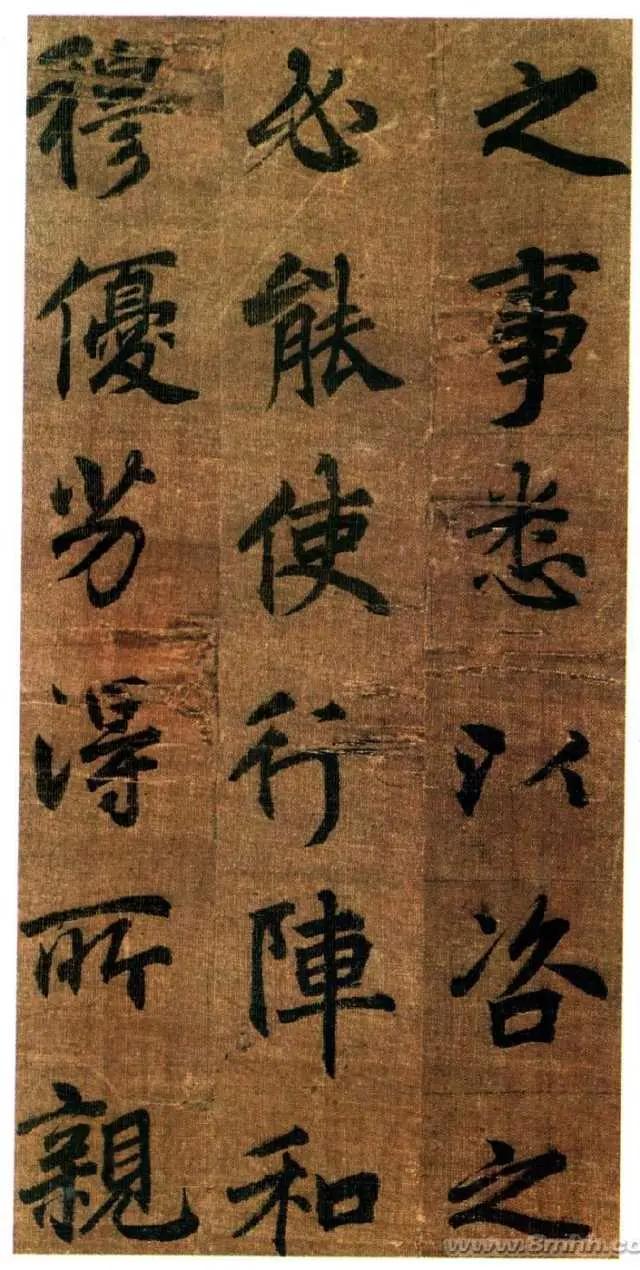 之事悉以咨之
必能使行陣和
穆優劣得所親
www.8mhh.co